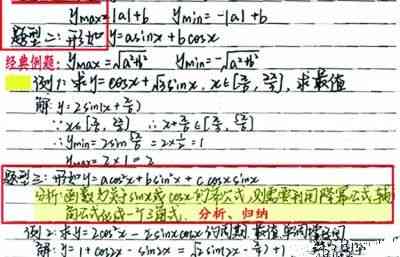 ymax=|a|+b ymin=-|a|+b
题型二:形如y=asinx+bcosx
经典例题: ymax=√a²+b² ymin=-√a²+b²
例1:求y=cosx+√3sinx, x∈[π/6, 2π/3],求最值
解:y=2sin(x+π/6)
∵x∈[π/6, 2π/3] ∴x+π/6∈[π/3, 5π/6]
∴ymin=2sin5π/6=2×1/2=1
ymax=2×1=2
题型三:形如y=acos²x+bsin²x+c cosxsinx
分析:函数为关于sinx或cosx的齐次式,则需要利用降幂公式,辅
角公式化成一个三角式. 分析、归纳
例2:求y=2cos²x-2sinxcosx的周期,最值,单调区间
解:y=1+cos2x-sin2x=√2sin(2x-